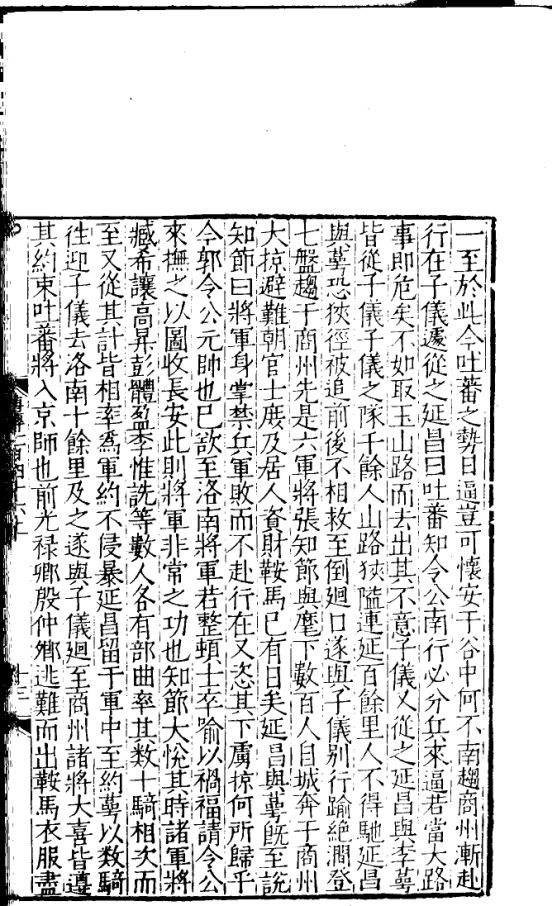 一至於此今吐蕃之勢日逼豈可懷安于谷中何不南趨商州漸赴
行在子儀遽從之延昌曰吐蕃知令公南行必分兵來逼若當大路
事即危矣不如取玉山路而去出其不意子儀又從之延昌與李萼
皆從子儀子儀之隊千餘人山路狹隘連延百餘里人不得馳延昌
與萼恐狹徑被追前後不相救至倒廻口遂與子儀别行踰絶澗登
七盤趨于商州先是六軍將張知節與麾下數百人自城奔于商州
大掠避難朝官士庶及居人資財鞍馬已有日矣延昌與萼旣至說
知節曰將軍身掌禁兵軍敗而不赴行在又恣其下虜掠何所歸乎
今郭令公元帥也已欲至洛南將軍若整頓士卒喻以禍福請令公
來撫之以圖收長安此則將軍非常之功也知節大悅其時諸軍將
臧希讓高昇彭體盈李惟詵等數人各有部曲率其數十騎相次而
至又從其計皆相率爲軍約不侵暴延昌留于軍中主約萼以数騎
徃迎子儀去洛南十餘里及之遂與子儀廻至商州諸將大喜皆遵
其約束吐蕃將入京師也前光禄卿殷仲卿逃難而出鞍馬衣服盡